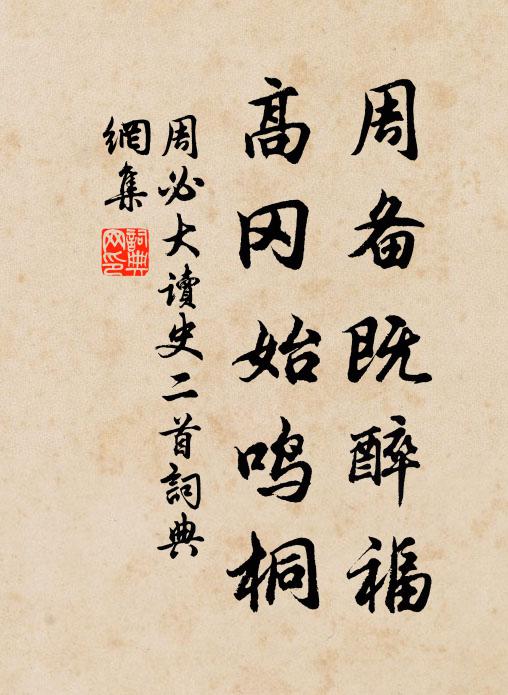 周备既醉福
高冈始鸣桐
周必大讀史二首詞典
網集
詞典網印